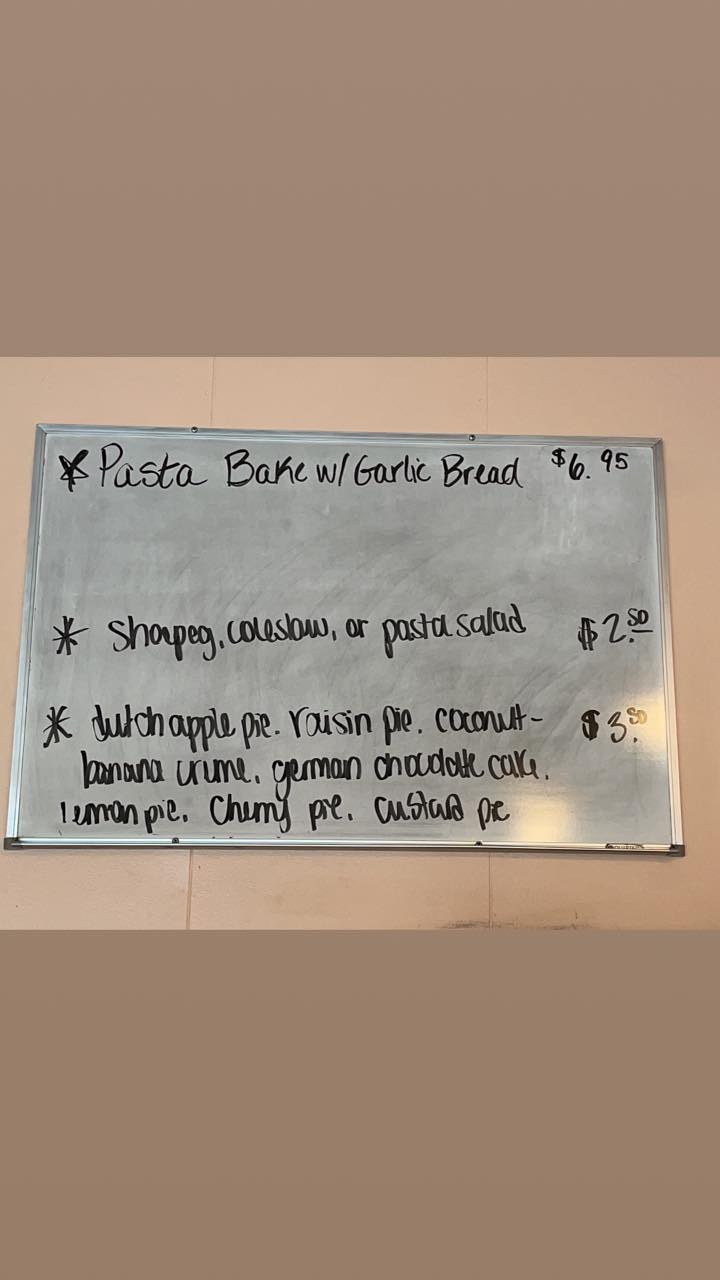 * Pasta Bake w/ Garlic Bread $6.95
* Shoepeg, coleslaw, or pasta salad $2.50
* dutch apple pie. raisin pie. coconut- $3.50
banana creme. german chocolate cake.
lemon pie. Cherry pie. Custard pie